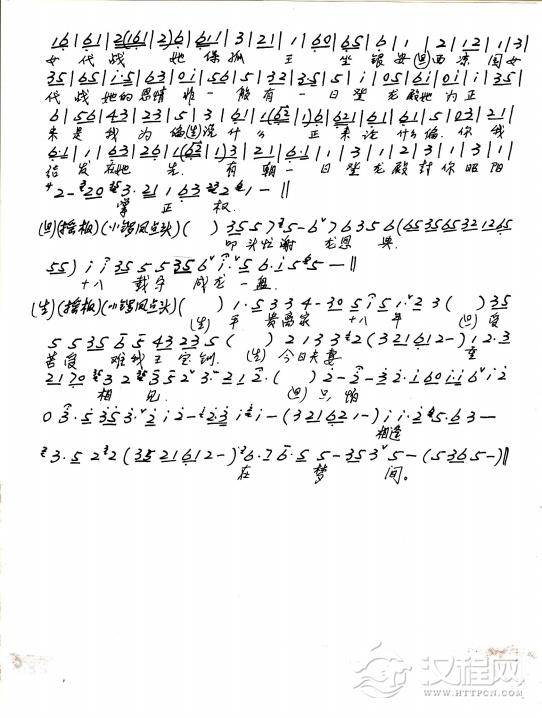 16|61|2(161|2)6|611|3|21|1|60|65|6|1|2|12|1|3|
女代战 她保孤王坐银安(旦)西凉国女
35|65|i·5|63|0i|56|5|32|35|5|i|05|6i|0i|i|35|
代战她的恩情 一般有一日坐龙殿她为正
6|56|43|23|5|3|61|1(62|1)6|621|61|61|5|03|21|
来是我为偏(生)说什么正来论什么偏你我
6·1|1|63|26|1(62|1)3|21|6·1|1|3|1|2|3|1|3|1|
结发在她先有朝一日坐龙殿封你昭阳
2-20 3·21 1 63 2 2 1-‖
掌正权.
(旦)(摇板)(小锣凤点头)( ) 3557 5-6 76356(65356532 1265
叩头忙谢龙恩典
55) i i 35 5 5 35 6 i· 5 6·i 5 5-‖
十八载守成龙一盘
(生)(摇板)(小锣凤点头)( ) 1·5 3 3 4-30 5 i 5 1·2 3 ( ) 35
(生)平贵离家十八年(旦)受
5 5 35 6 5 43 23 5 ( ) 2 1 3 3 2(321612-) 12·3
苦受难线王宝钏 (生)今日夫妻重
2120 3 2 3 5 2 3·2 1 2·( ) 2-2-32·1601 1 6 1 2
相见 (旦)只怕
0 3·5 353·2 i 2-2·3 i i-(321621-) i i·2 5·6 3-
相逢
3·5 2 2(3521612-) 6·7 6·5 5-353 5-(5365-)‖
在梦间。
汉程网
WWW.HTTPCN.COM